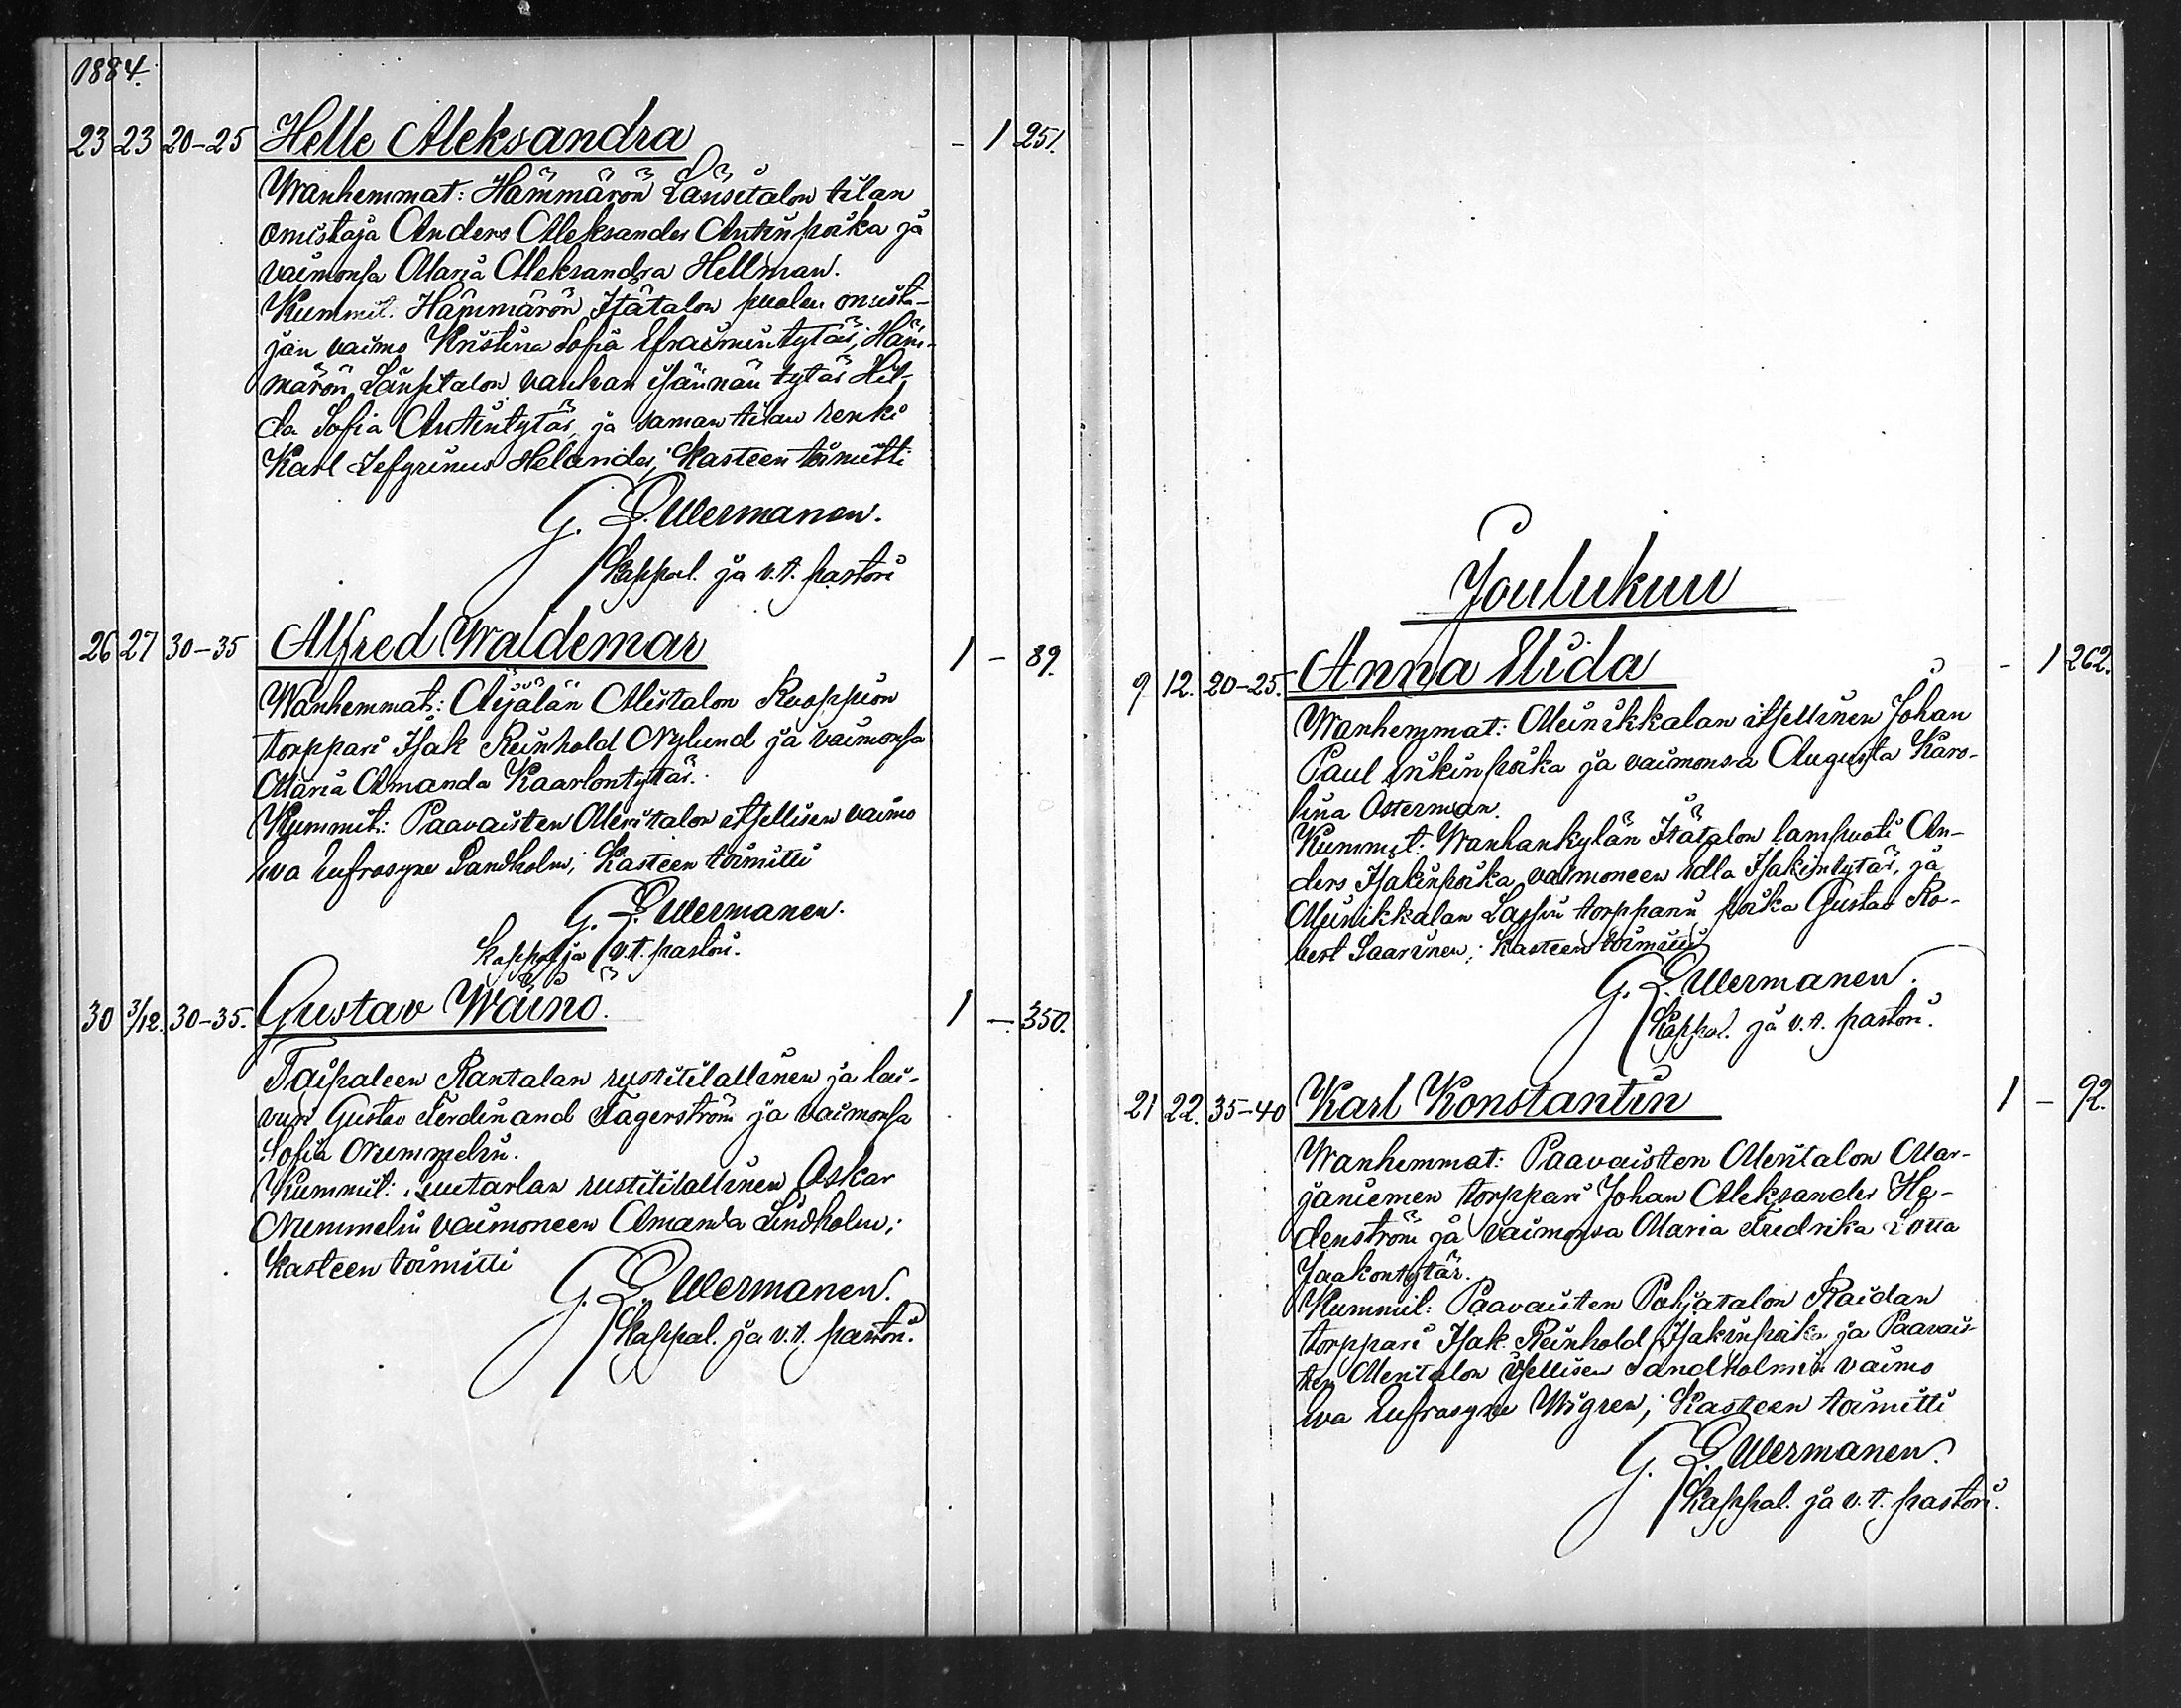 1884.
23 23 20-25 Helle Aleksandra - 1 251.
Wanhemmat: Hämmärön Länsitalon tilan
omistaja Anders Aleksander Antinpoika ja
vaimonsa Maria Aleksandra Hellman.
Kummit: Hämmärön Itätalon puolen omista-
jan vaimo Kristina Sofia Efraimintytär; Häm-
märön Länsitalon vanhan isännän tytär Hil-
da Sofia Antintytär, ja saman tilan renki
Karl Helander; Kasteen toimitti
G. L. Wermanen.
Kappal. ja v.t. pastori
26 27 30-35 Alfred Waldemar 1 - 89.
Wanhemmat: Äijälän Alistalon Ruoppion
torppari Isak Reinhold Nylund ja vaimonsa
Maria Amanda Kaarlontytär.
Kummit: Paavaisten Meritalon itsellisen vaimo
Eva Eufrosyne Sandholm; Kasteen toimitti
G. L. Wermanen.
Kappal ja v.t. pastori.
30 3/12. 30-35. Gustav Wäinö. 1 - 350.
Taipaleen Rantalan rustitilallinen ja lai-
vuri Gustav Ferdinand Fagerström ja vaimonsa
Sofia Nummelin.
Kummit: Suutarlan rustitilallinen Oskar
Nummelin vaimoneen Amanda Lindholm;
Kasteen toimitti
G. L. Wermanen.
Kappal. ja v.t. pastori.
Joulukuu
9 12. 20-25. Anna Elida - 1 262.
Wanhemmat: Meinikkalan itsellinen Johan
Paul Erikinpoika ja vaimonsa Augusta Karo-
lina Österman.
Kummit: Wanhankylän Itätalon lampuoti An-
ders Isakinpoika vaimoneen Edla Isakintytär, ja
Meinikkalan Lassin torpparin poika Gustav Ro-
bert Saarinen; Kasteen toimitti
G. L. Wermanen.
Kappal. ja v.t. pastori.
21 22. 35-40 Karl Konstantin 1 - 92.
Wanhemmat: Paavaisten Meritalon Mar-
janiemen torppari Johan Aleksander He-
denström ja vaimonsa Maria Fredrika Lovisa
Jaakontytär.
Kummit: Paavaisten Pohjatalon Raidan
torppari Isak Reinhold Isakinpoika ja Paavais-
ten Meritalon itsellisen Sandholmin vaimo
Eva Eufrosyne Wigren; Kasteen toimitti
G. L. Wermanen.
Kappal. ja v.t. pastori.